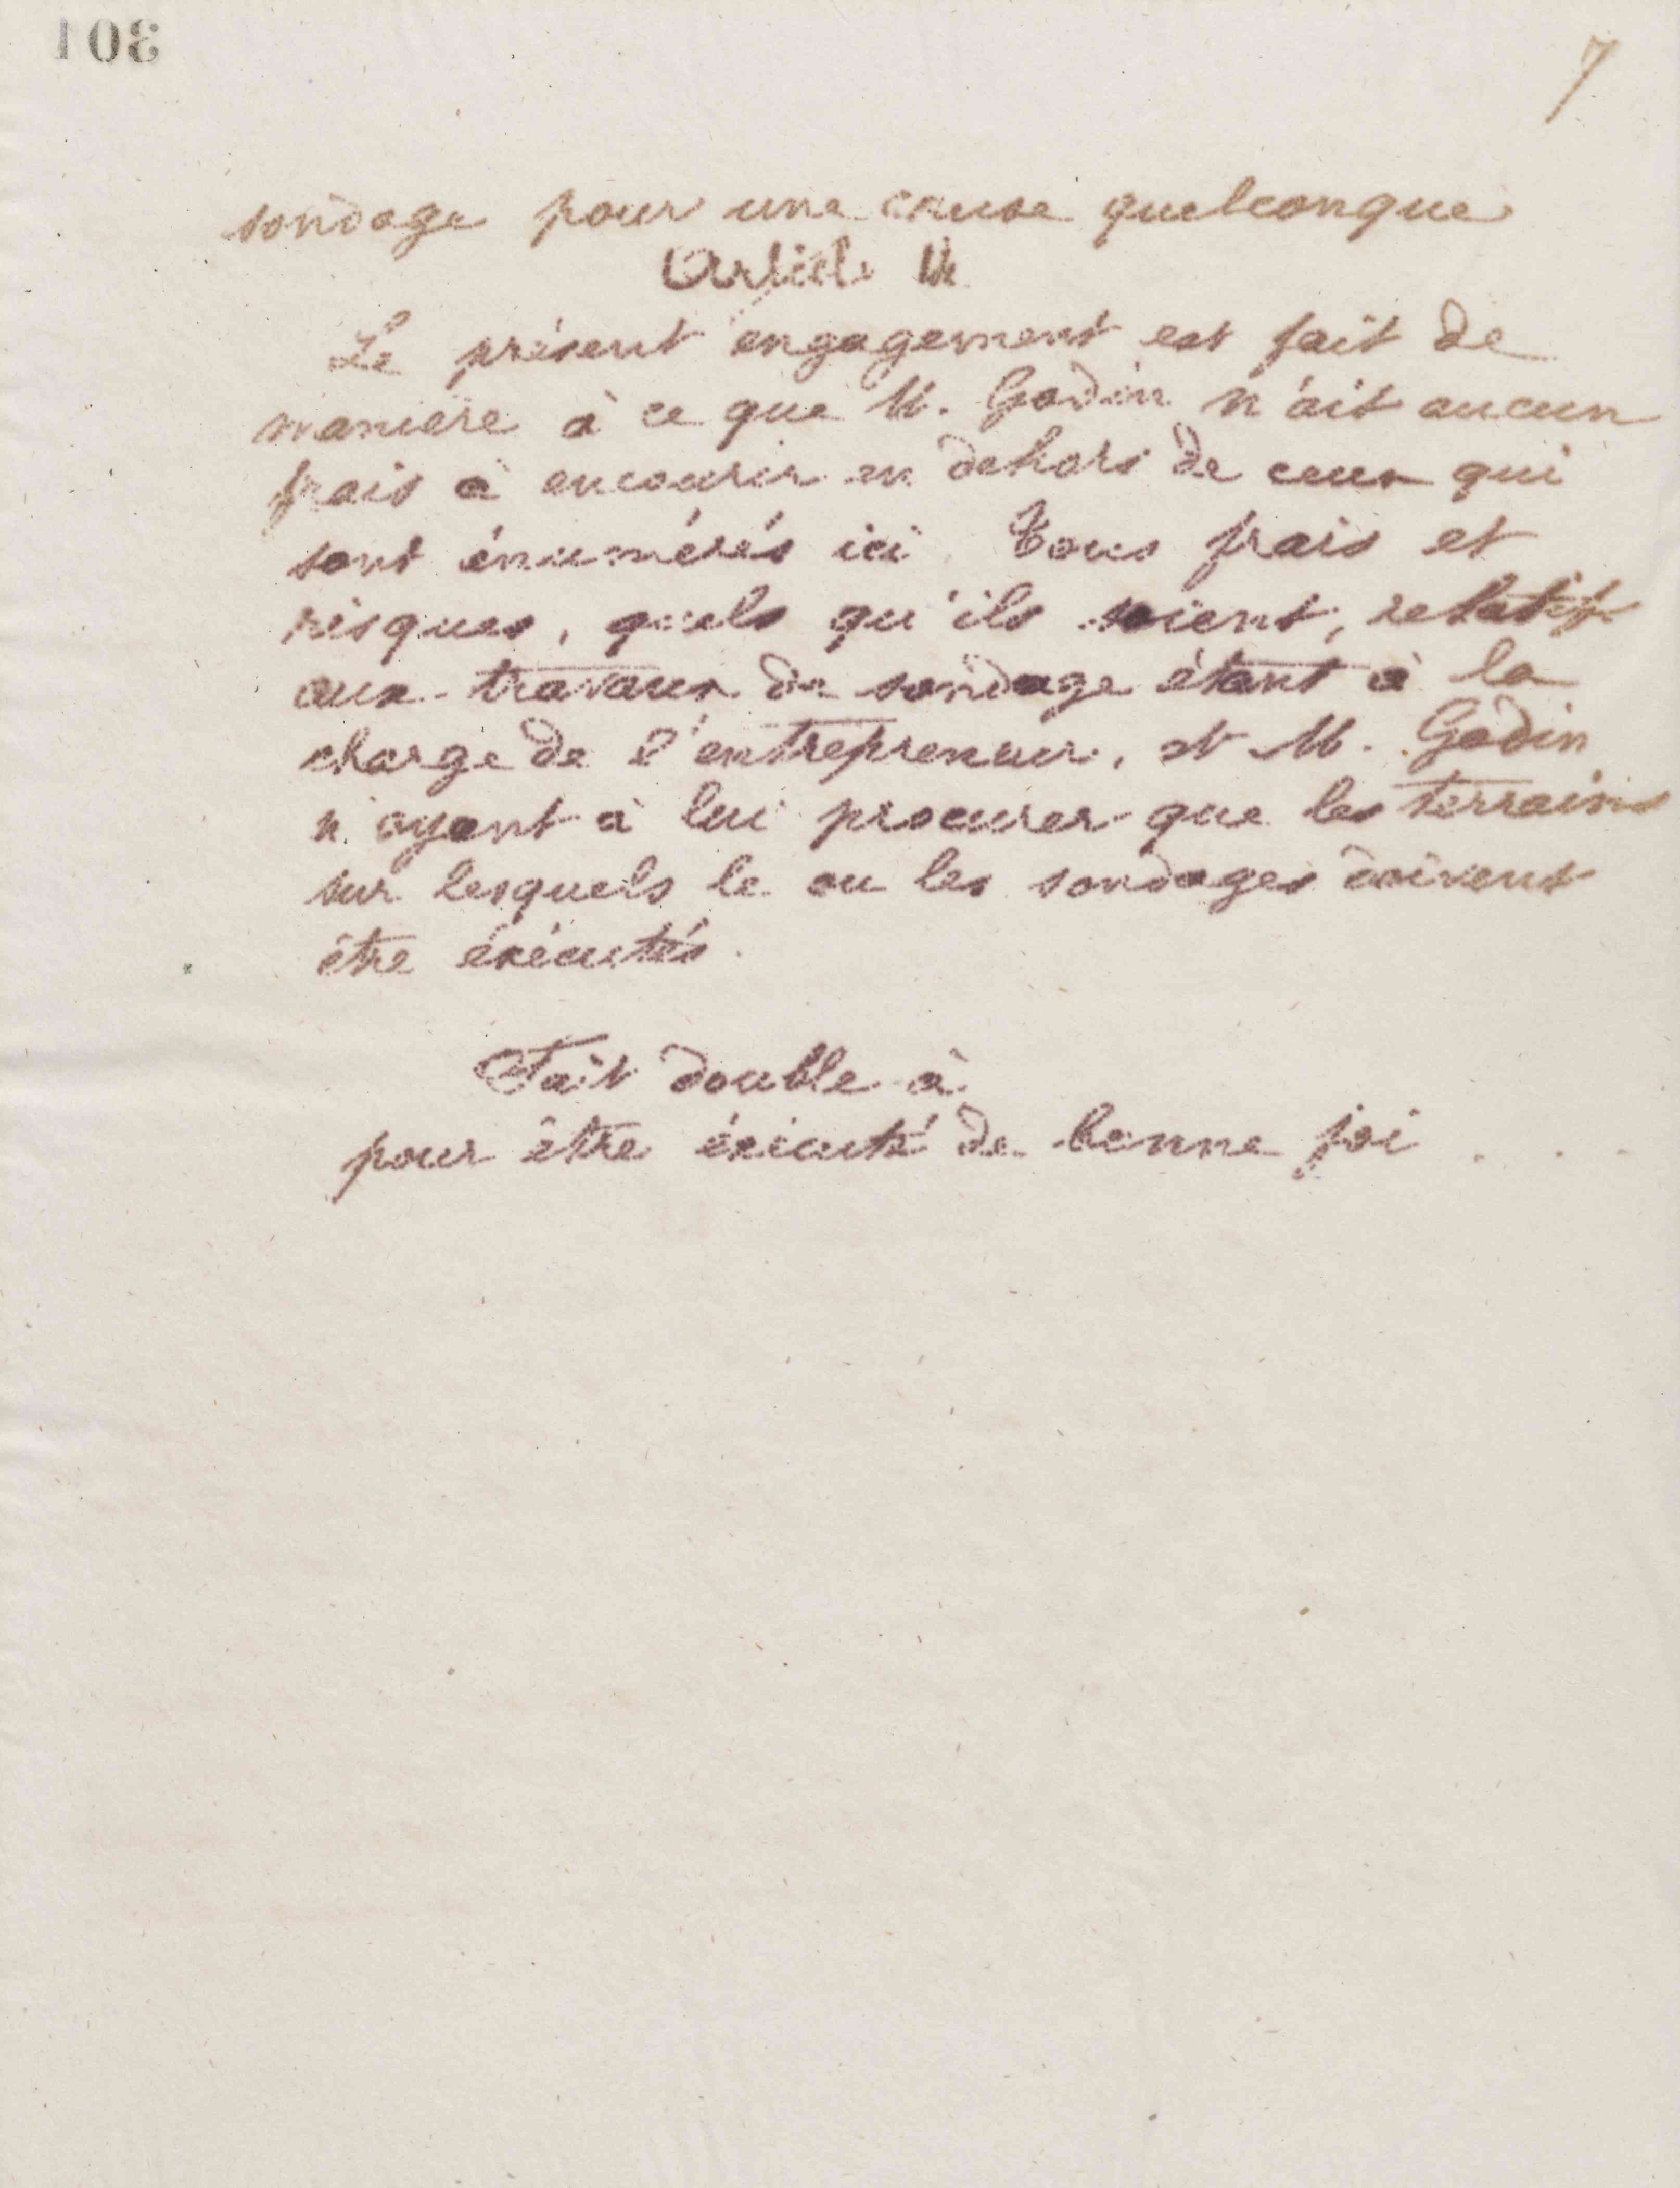 301
7
sondage pour une cause quelconque
Article 14
Le présent engagement est fait de
manière à ce que M. Godin n'ait aucun
frais à encourir en dehors de ceux qui
sont énumérés ici Tous frais et
risques, quels qu'ils soient, relatifs
aux travaux de sondage étant à la
charge de l'entrepreneur, et M. Godin
n'ayant à lui procurer que les terrains
sur lesquels le ou les sondages doivent
être éxécutés.
Fait double à
pour être éxécuté de bonne foi . . .